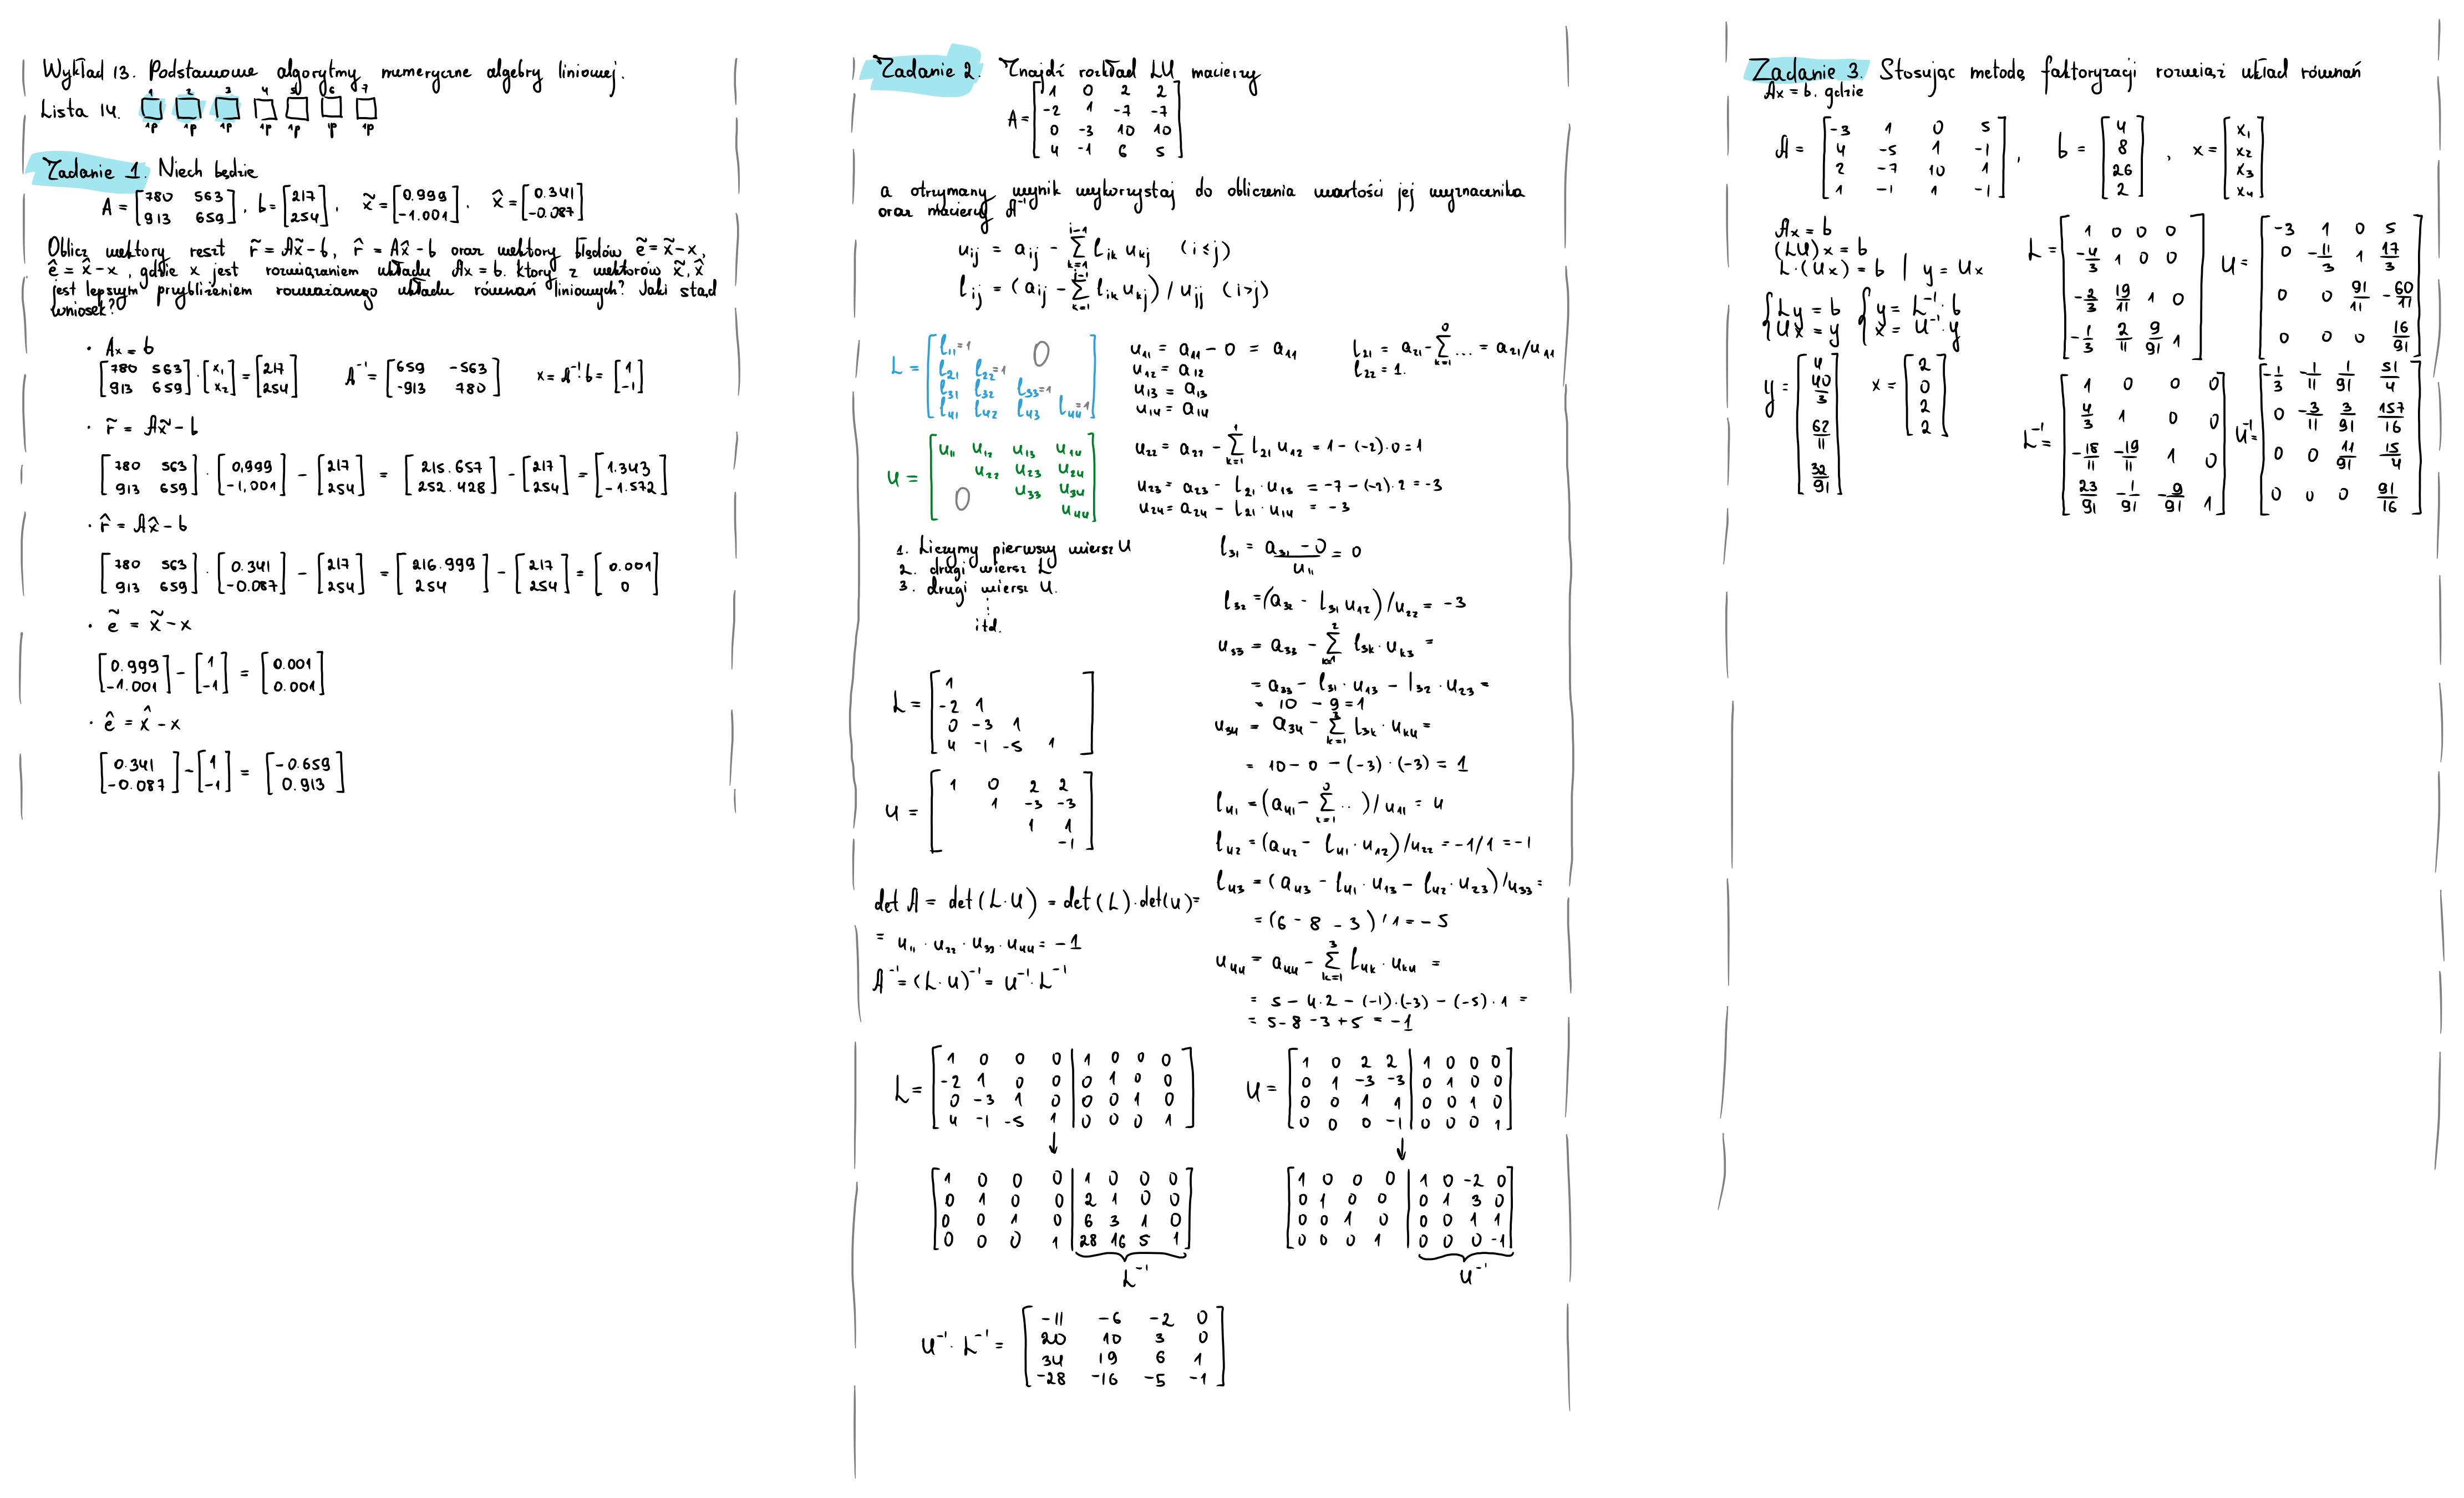 Wykład 13. Podstawowe algorytmy numeryczne algebry liniowej.
1 2 3 4 5 6 7
Lista 14.
1p 1p 1p 1p 1p 1p 1p
Zadanie 1. Niech będzie
A = [780 563; 913 659], b = [217; 254], x̃ = [0.999; -1.001], x̂ = [0.341; -0.087]
Oblicz wektory reszt r̃ = Ax̃ - b, r̂ = Ax̂ - b oraz wektory błędów ẽ = x̃ - x,
ê = x̂ - x, gdzie x jest rozwiązaniem układu Ax = b. Który z wektorów x̃, x̂
jest lepszym przybliżeniem rozważanego układu równań liniowych? Jaki stąd
wniosek?
• Ax = b
[780 563; 913 659] · [x₁; x₂] = [217; 254] A⁻¹ = [659 -563; -913 780] x = A⁻¹·b = [1; -1]
• r̃ = Ax̃ - b
[780 563; 913 659] · [0,999; -1,001] - [217; 254] = [215.657; 252.428] - [217; 254] = [1.343; -1.572]
• r̂ = Ax̂ - b
[780 563; 913 659] · [0.341; -0.087] - [217; 254] = [216.999; 254] - [217; 254] = [0.001; 0]
• ẽ = x̃ - x
[0.999; -1.001] - [1; -1] = [0.001; 0.001]
• ê = x̂ - x
[0.341; -0.087] - [1; -1] = [-0.659; 0.913]
Zadanie 2. Znajdź rozkład LU macierzy
A = [1 0 2 2; -2 1 -7 -7; 0 -3 10 10; 4 -1 6 5]
a otrzymany wynik wykorzystaj do obliczenia wartości jej wyznacznika
oraz macierzy A⁻¹
u_ij = a_ij - Σ_{k=1}^{i-1} l_ik u_kj (i ≤ j)
l_ij = (a_ij - Σ_{k=1}^{j-1} l_ik u_kj) / u_jj (i > j)
L = [l₁₁=1 0; l₂₁ l₂₂=1; l₃₁ l₃₂ l₃₃=1; l₄₁ l₄₂ l₄₃ l₄₄=1]
u₁₁ = a₁₁ - 0 = a₁₁
u₁₂ = a₁₂
u₁₃ = a₁₃
u₁₄ = a₁₄
l₂₁ = a₂₁ - Σ_{k=1}^{0} ... = a₂₁/u₁₁
l₂₂ = 1.
U = [u₁₁ u₁₂ u₁₃ u₁₄; u₂₂ u₂₃ u₂₄; 0 u₃₃ u₃₄; u₄₄]
u₂₂ = a₂₂ - Σ_{k=1}^{1} l₂₁ u₁₂ = 1 - (-2)·0 = 1
u₂₃ = a₂₃ - l₂₁·u₁₃ = -7 - (-2)·2 = -3
u₂₄ = a₂₄ - l₂₁·u₁₄ = -3
1. Liczymy pierwszy wiersz U
2. drugi wiersz L
3. drugi wiersz U.
⋮
itd.
l₃₁ = (a₃₁ - 0)/u₁₁ = 0
l₃₂ = (a₃₂ - l₃₁ u₁₂)/u₂₂ = -3
u₃₃ = a₃₃ - Σ_{k=1}^{2} l₃k·u_k3 =
= a₃₃ - l₃₁·u₁₃ - l₃₂·u₂₃ =
= 10 - 9 = 1
u₃₄ = a₃₄ - Σ_{k=1}^{3} l₃k·u_k4 =
= 10 - 0 - (-3)·(-3) = 1
l₄₁ = (a₄₁ - Σ_{k=1}^{0} ..)/u₁₁ = 4
l₄₂ = (a₄₂ - l₄₁·u₁₂)/u₂₂ = -1/1 = -1
l₄₃ = (a₄₃ - l₄₁·u₁₃ - l₄₂·u₂₃)/u₃₃ =
= (6 - 8 - 3)/1 = -5
u₄₄ = a₄₄ - Σ_{k=1}^{3} l₄k·u_k4 =
= 5 - 4·2 - (-1)·(-3) - (-5)·1 =
= 5 - 8 - 3 + 5 = -1
L = [1; -2 1; 0 -3 1; 4 -1 -5 1]
U = [1 0 2 2; 1 -3 -3; 1 1; -1]
det A = det(L·U) = det(L)·det(U) =
= u₁₁·u₂₂·u₃₃·u₄₄ = -1
A⁻¹ = (L·U)⁻¹ = U⁻¹·L⁻¹
L = [1 0 0 0 | 1 0 0 0; -2 1 0 0 | 0 1 0 0; 0 -3 1 0 | 0 0 1 0; 4 -1 -5 1 | 0 0 0 1]
↓
[1 0 0 0 | 1 0 0 0; 0 1 0 0 | 2 1 0 0; 0 0 1 0 | 6 3 1 0; 0 0 0 1 | 28 16 5 1]
L⁻¹
U = [1 0 2 2 | 1 0 0 0; 0 1 -3 -3 | 0 1 0 0; 0 0 1 1 | 0 0 1 0; 0 0 0 -1 | 0 0 0 1]
↓
[1 0 0 0 | 1 0 -2 0; 0 1 0 0 | 0 1 3 0; 0 0 1 0 | 0 0 1 1; 0 0 0 1 | 0 0 0 -1]
U⁻¹
U⁻¹·L⁻¹ = [-11 -6 -2 0; 20 10 3 0; 34 19 6 1; -28 -16 -5 -1]
Zadanie 3. Stosując metodę faktoryzacji rozwiąż układ równań
Ax = b. gdzie
A = [-3 1 0 5; 4 -5 1 -1; 2 -7 10 1; 1 -1 1 -1], b = [4; 8; 26; 2], x = [x₁; x₂; x₃; x₄]
Ax = b
(LU)x = b
L·(Ux) = b | y = Ux
{Ly = b {y = L⁻¹·b
{Ux = y {x = U⁻¹·y
y = [4; 40/3; 62/11; 32/91] x = [2; 0; 2; 2]
L = [1 0 0 0; -4/3 1 0 0; -2/3 19/11 1 0; -1/3 2/11 9/91 1]
U = [-3 1 0 5; 0 -11/3 1 17/3; 0 0 91/11 -60/11; 0 0 0 16/91]
L⁻¹ = [1 0 0 0; 4/3 1 0 0; -18/11 -19/11 1 0; 23/91 -1/91 -9/91 1]
U⁻¹ = [-1/3 -1/11 1/91 51/4; 0 -3/11 3/91 157/16; 0 0 11/91 15/4; 0 0 0 91/16]